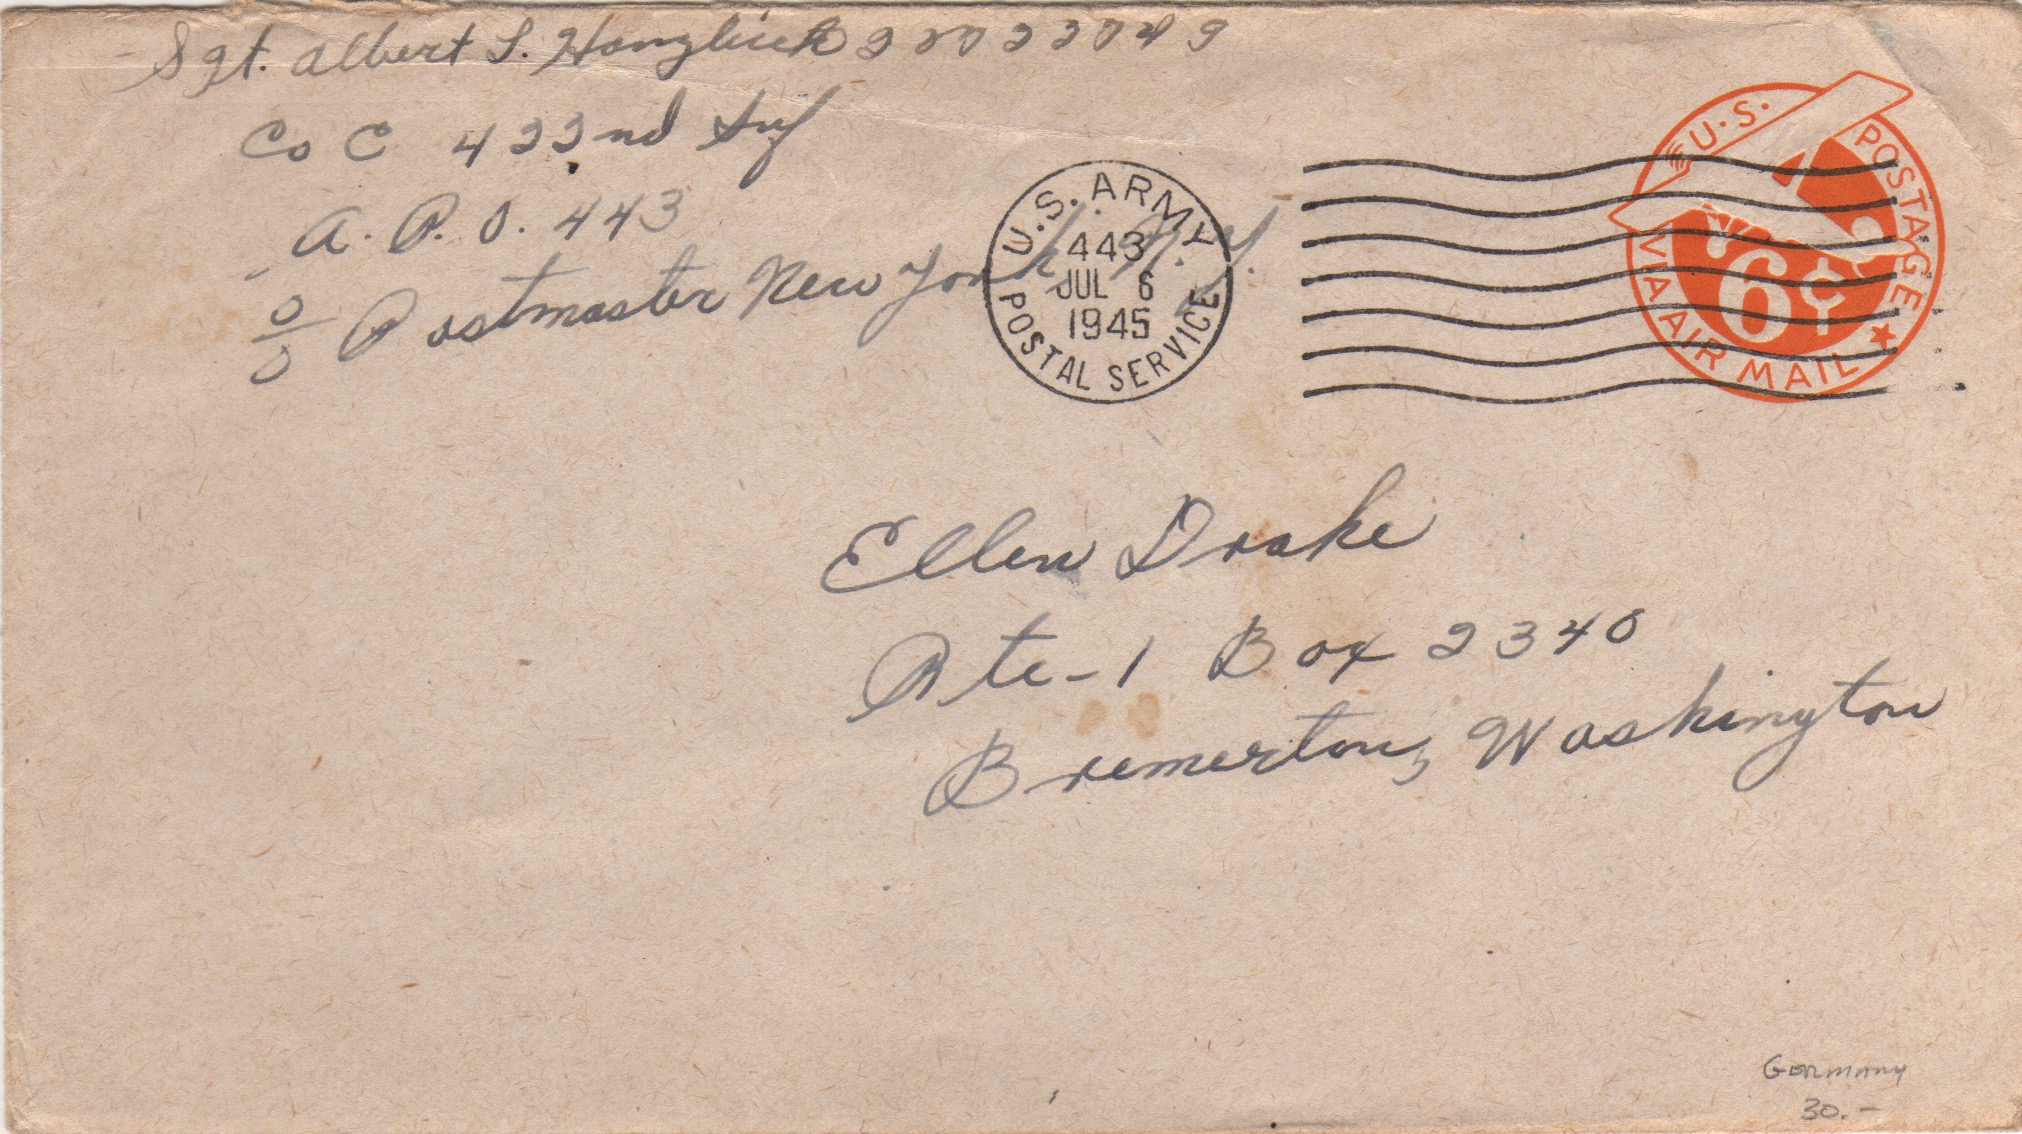 Sgt. Albert L. Hanzlicek
Co C 422nd Inf
A.P.O. 443
c/o Postmaster New York N.Y.
U.S. ARMY
443
JUL 6
1945
POSTAL SERVICE
U.S. POSTAGE
6¢
VIA AIR MAIL
Ellen Drake
Rte-1 Box 2340
Bremerton, Washington
GERMANY
30.-